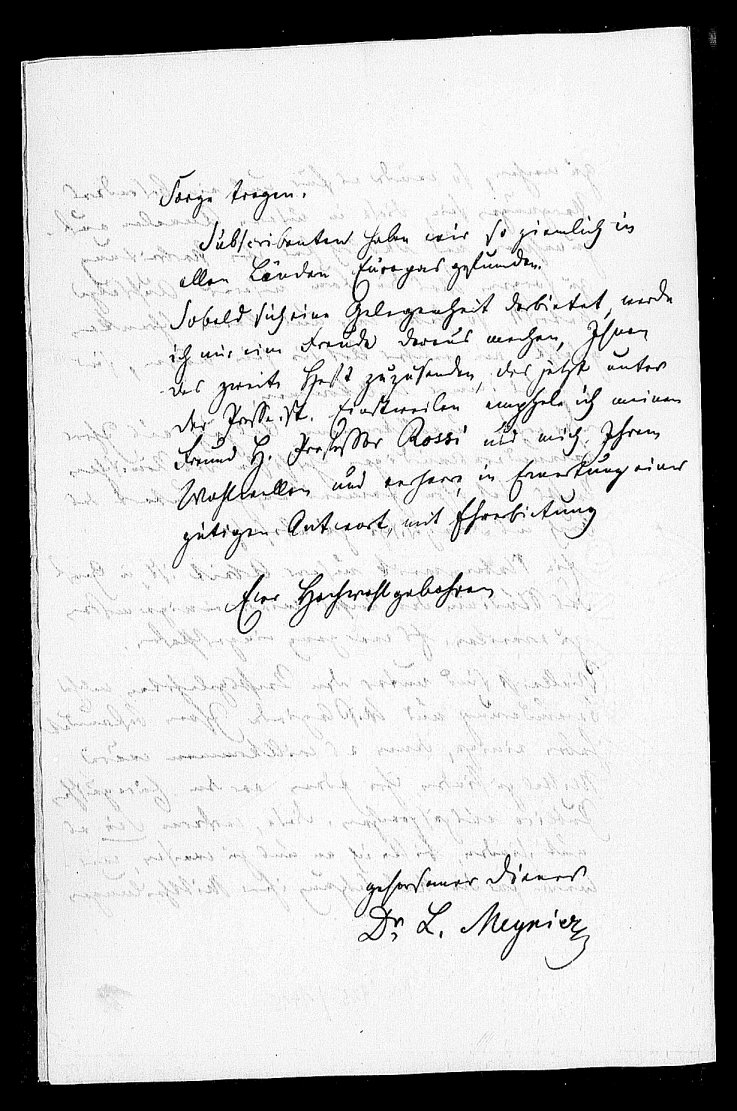 Sorge tragen.
Subscribenten haben wir so ziemlich in
allen Länden Europas gefunden.
Sobald sich eine Gelegenheit darbietet, werde
ich mir eine Freude daraus machen, Ihnen
das zweite Heft zuzusenden, das jetzt unter
der Presse ist. Einstweilen emphele ich meinen
Freund H. Professor Rossi und mich Ihrem
Wohlwollen und verharre, in Erwartung einer
gütigen Antwort, mit Ehrerbietung
Euer Hochwohlgebohren
gehorsamer Diener
Dr. L. Meynier